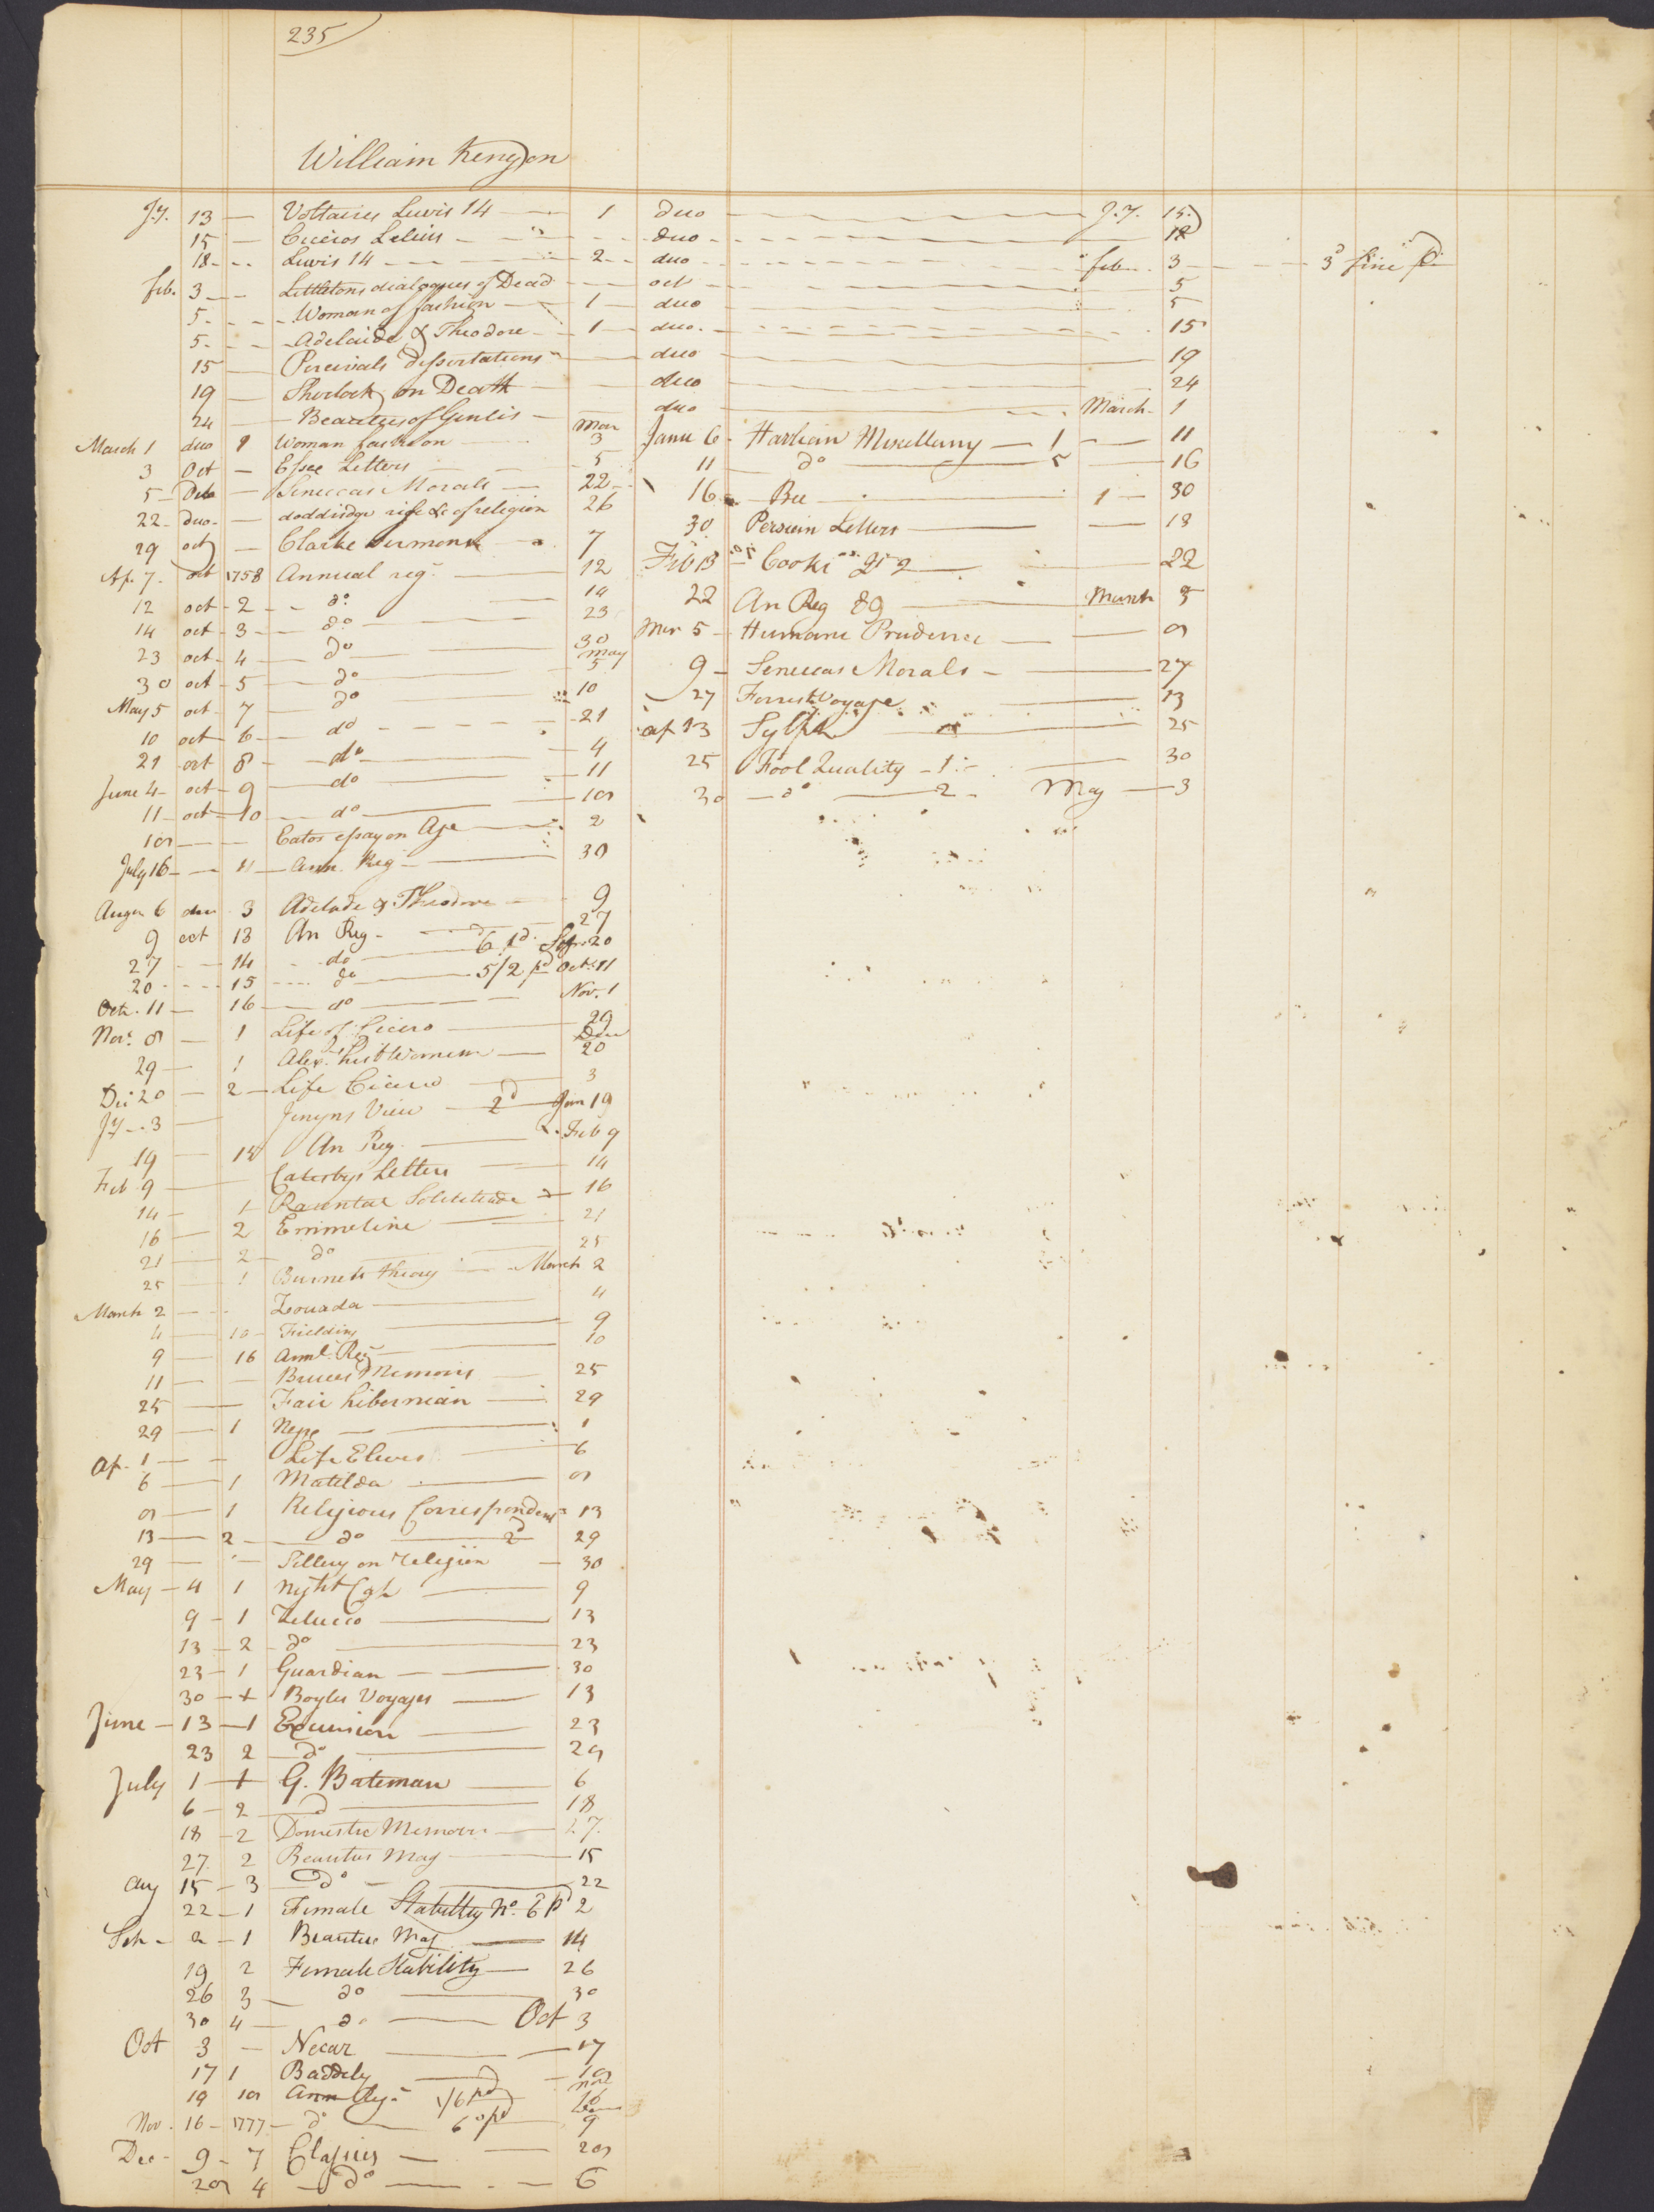 235
William Kenyon
J.y. 13 — Voltaires Lewis 14 — 1 duo — J.y. 15
15 — Ciceros Lelius — duo — 18
18 — Lewis 14 — 2 — duo — feb. 3 — 3d fine pd
feb. 3 — Littletons dialogues of Dead — oct — 5
5 — Woman of fashion — 1 — duo — 5
5 — Adelaide & Theodore — 1 — duo — 15
15 — Percivals dissertations — duo — 19
19 — Sherlock on Death — duo — 24
24 — Beauties of Genlis — duo — March 1
March 1 duo Woman fashion — Mar 3
3 Oct — Letters — 5
5 — Senecas Morals — 22
22 — duo — doddridge rise &c of religion 26
29 oct — Clarke Sermons — 7
Ap. 7. oct 1758 Annual reg. — 12
12 oct 2 — do — 14
14 oct 3 — do — 23
23 oct 4 — do — 30
30 oct 5 — do — May 5
May 5 oct 7 — do — 10
10 oct 6 — do — 21
21 oct 8 — do — 4
June 4 oct 9 — do — 11
11 oct 10 — do — 18
18 — Catos essay on Age — 2
July 16 — 11 — Ann. Reg — 30
Augu 6 duo 3 Adelade & Theodore — 9
9 oct 13 An Reg — 27
27 — 14 — do — 6d Sep. 20
20 — 15 — do — 5/2 pd Oct. 11
Octr. 11 — 16 — do — Nov. 1
Nor. 8 — 1 Life of Cicero — 29
29 — 1 Alexr. hist Women — Dec 20
Dec 20 — 2 — Life Cicero — 3
J.y — 3 — Jenyns View — 2d Jan 19
19 — An Reg. — Feb 9
Feb 9 — Catesbys Letters — 14
14 — 1 — 16
16 — 2 Emmeline — 21
21 — 2 — do — 25
25 — 1 Burnets theory — March 2
March 2 — Louada — 4
4 — 10 — Fielding — 9
9 — 16 Annl. Reg — 10
11 — Bruces Memoirs — 25
25 — Fair hibernian — 29
29 — 1 — 1
Ap. 1 — Life Elwes — 6
6 — 1 Matilda — 8
8 — 1 Religious Correspondent 13
13 — 2 — do — 2d 29
29 — on religion — 30
May — 4 1 — 9
9 — 1 Zelucco — 13
13 — 2 — do — 23
23 — 1 Guardian — 30
30 — 1 Boyles Voyages — 13
June — 13 — 1 Excursion — 23
23 2 — do — 29
July 1 — 1 G. Bateman — 6
6 — 2 — do — 18
18 — 2 Domestic Memoirs — 27.
27. 2 Beauties Mag — 15
Aug 15 — 3 — do — 22
22 — 1 Female Stability No. 6 pd 2
2 — 1 Beauties Mag — 14
19 2 Female Stability — 26
26 3 — do — 30
30 4 — do — Oct 3
Oct 3 — Necar — 17
17 1 Baddely — 19
19 18 Ann Reg. 1/6 pd Nov 16
Nov. 16 — 1777 — do — 6d pd 9
Dec — 9 — 7 — 28
28 4 — do — 6
Janu 6 — Harleian Miscellany — 1 — 11
11 — do — 5 — 16
16 — Bee — 1 — 30
30 Persian Letters — 13
Feb 13 — Cooks — 22
22 An Reg 89 — March 5
Mar 5 — Humane Prudence — 9
9 — Senecas Morals — 27
27 Forrest Voyage — 13
Ap 13 Sylph — 25
25 Fool Quality — 1 — 30
30 — do — 2 — May — 3